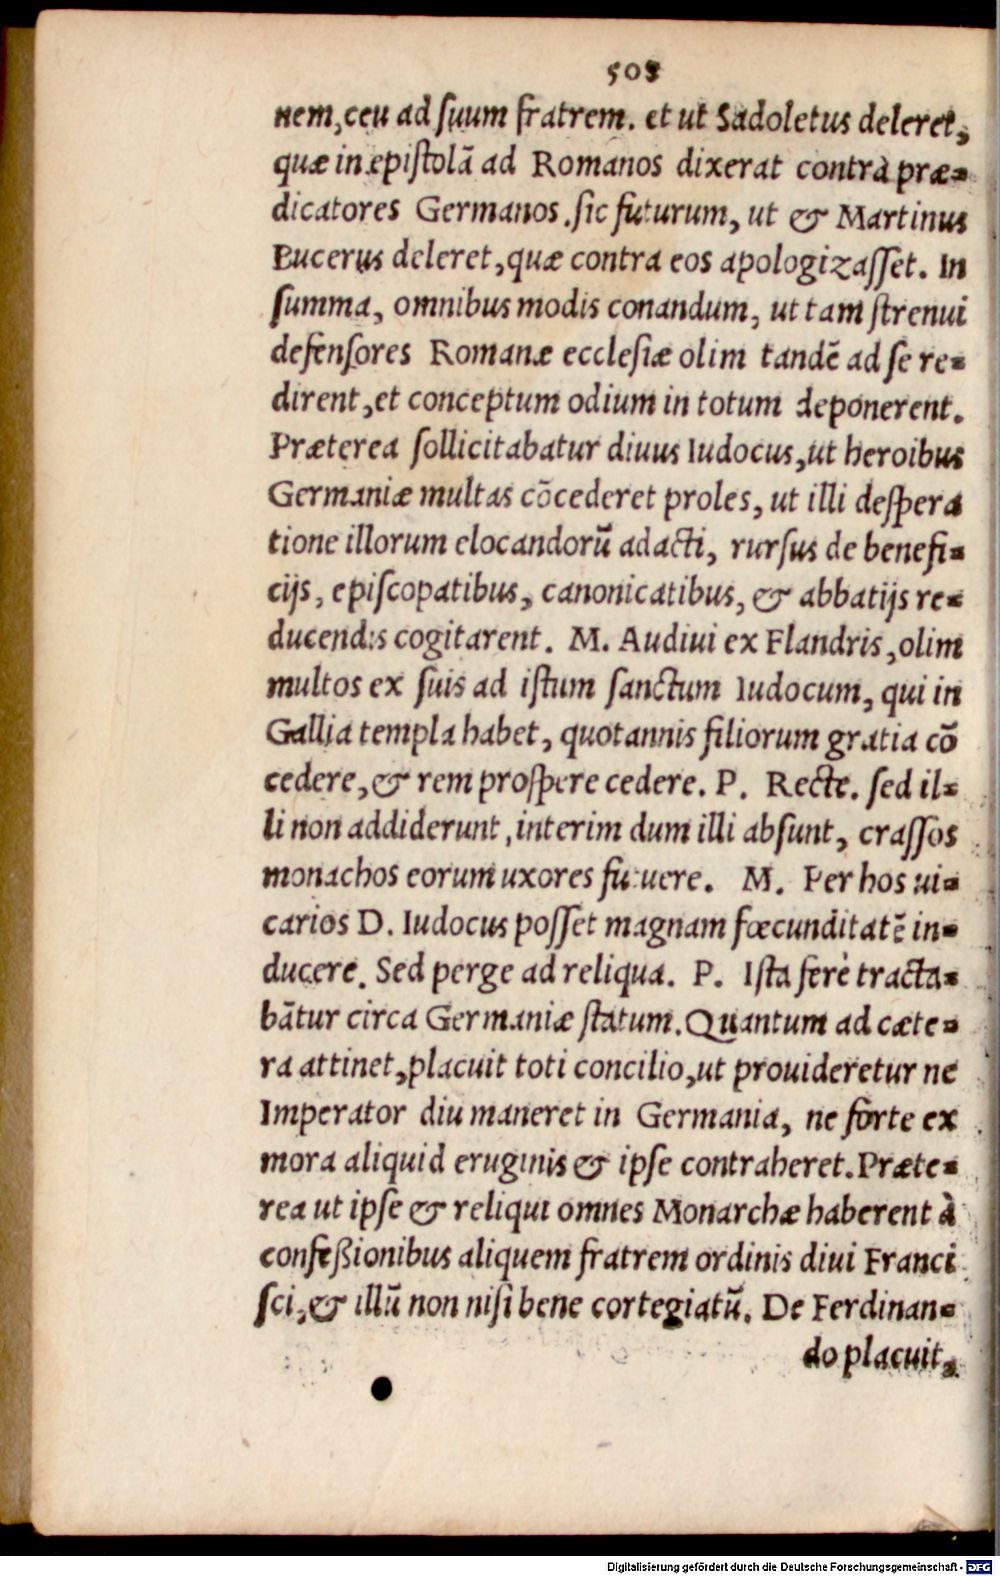 508
nem, ceu ad ſuum fratrem. et ut Sadoletus deleret,
quæ in epiſtolã ad Romanos dixerat contrà præ-
dicatores Germanos. ſic futurum, ut & Martinus
Bucerus deleret, quæ contra eos apologizaſſet. In
ſumma, omnibus modis conandum, ut tam ſtrenui
defenſores Romanæ eccleſiæ olim tandẽ ad ſe re-
dirent, et conceptum odium in totum deponerent.
Præterea ſollicitabatur diuus Iudocus, ut heroibus
Germaniæ multas cõcederet proles, ut illi deſpera
tione illorum elocandorũ adacti, rurſus de benefi-
cijs, epiſcopatibus, canonicatibus, & abbatijs re-
ducendis cogitarent. M. Audiui ex Flandris, olim
multos ex ſuis ad iſtum ſanctum Iudocum, qui in
Gallia templa habet, quotannis filiorum gratia cõ
cedere, & rem proſpere cedere. P. Recte. ſed il-
li non addiderunt, interim dum illi abſunt, craſſos
monachos eorum uxores futuere. M. Per hos ui-
carios D. Iudocus poſſet magnam fœcunditatẽ in-
ducere. Sed perge ad reliqua. P. Iſta ferè tracta-
bãtur circa Germaniæ ſtatum. Quantum ad cæte-
ra attinet, placuit toti concilio, ut prouideretur ne
Imperator diu maneret in Germania, ne forte ex
mora aliquid eruginis & ipſe contraheret. Præte-
rea ut ipſe & reliqui omnes Monarchæ haberent à
confeßionibus aliquem fratrem ordinis diui Franci
ſci, & illũ non niſi bene cortegiatũ. De Ferdinan-
do placuit,
Digitalisierung gefördert durch die Deutsche Forschungsgemeinschaft - DFG